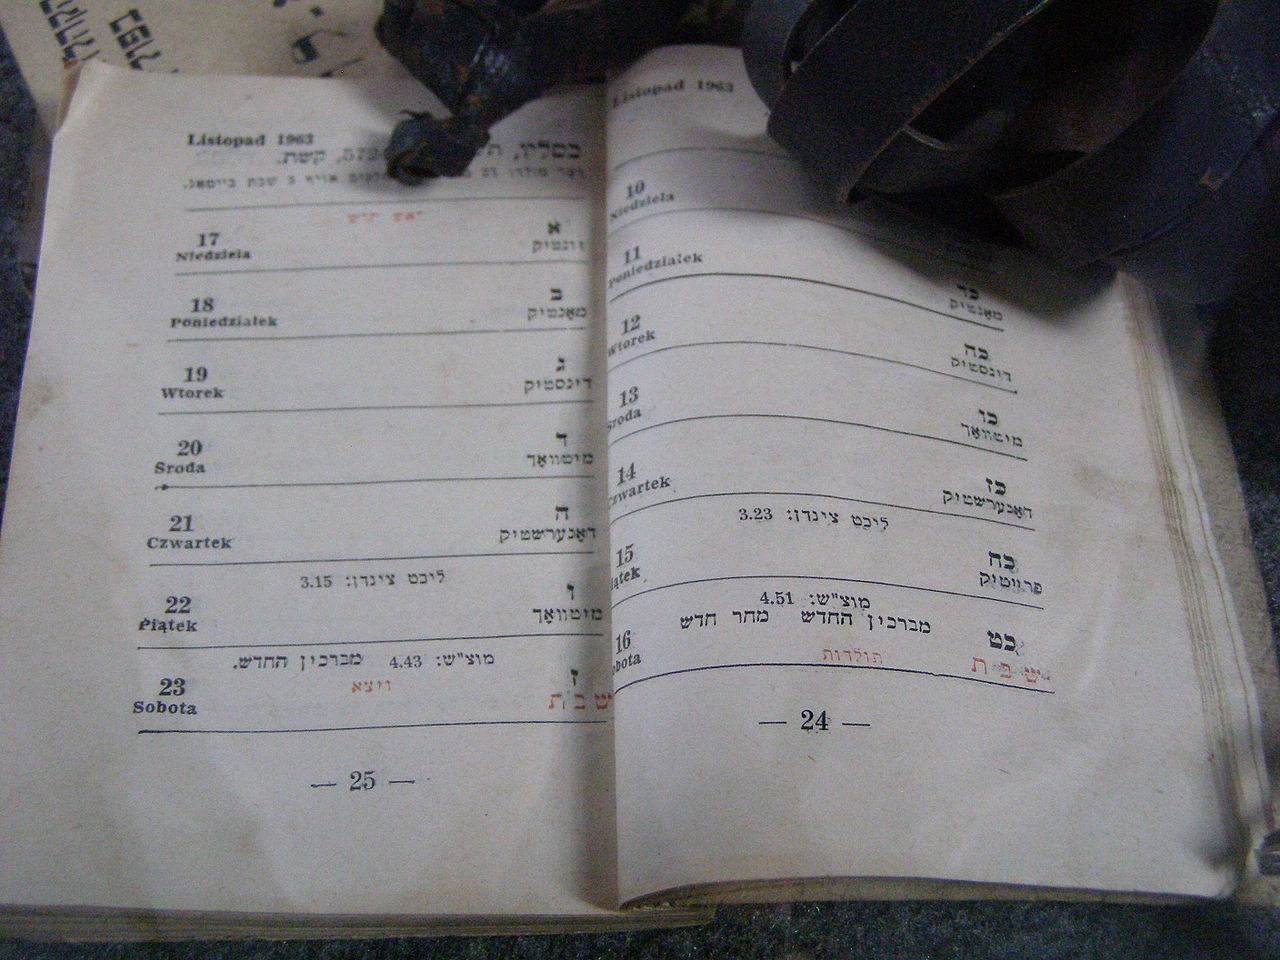 Listopad 1963
10
Niedziela
11
Poniedziałek
כד
מאָנטיק
12
Wtorek
כה
דינסטיק
13
Sroda
כו
מיטוואָך
14
Czwartek
כז
דאָנערשטיק
ליכט צינדן: 3.23
15
Piątek
כח
פרייטיק
מוצ"ש: 4.51
מברכין החדש מחר חדש
16
Sobota
כט
תולדות
שבת
— 24 —
Listopad 1963
כסליו, קשת.
17
Niedziela
א
זונטיק
18
Poniedziałek
ב
מאָנטיק
19
Wtorek
ג
דינסטיק
20
Sroda
ד
מיטוואָך
21
Czwartek
ה
דאָנערשטיק
ליכט צינדן: 3.15
22
Piątek
ו
מיטוואָך
מוצ"ש: 4.43 מברכין החדש.
23
Sobota
ז
ויצא
שבת
— 25 —